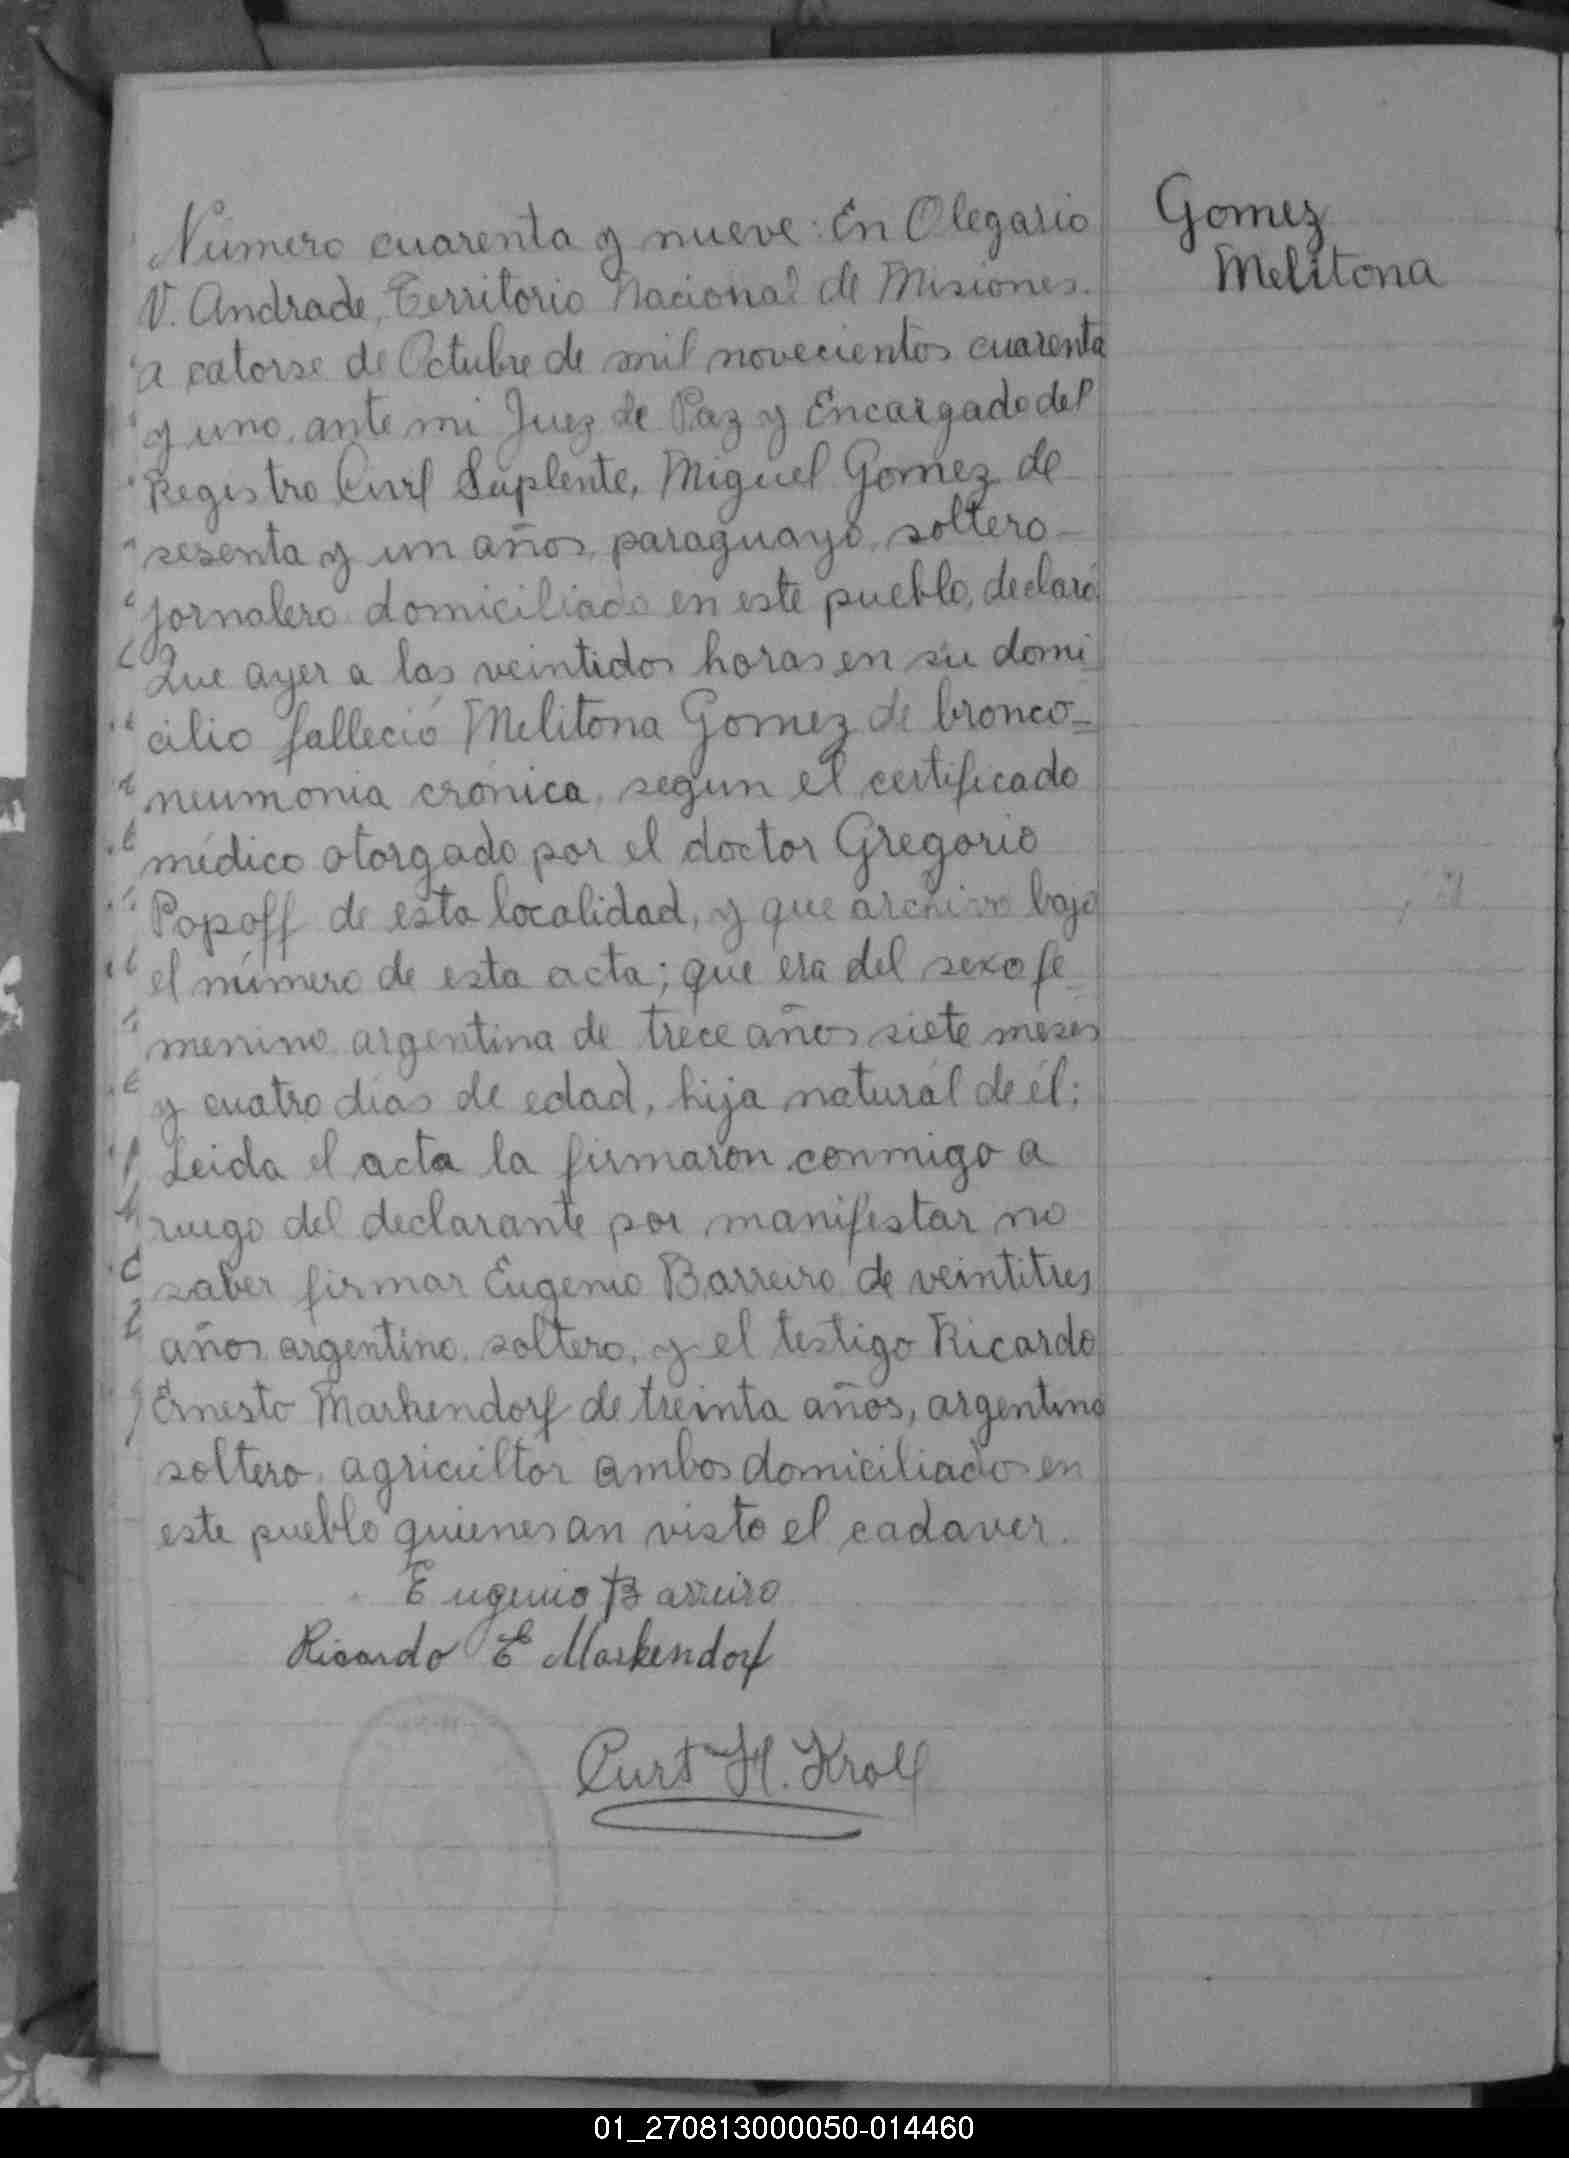 Número cuarenta y nueve: En Olegario
V. Andrade, Territorio Nacional de Misiones.
a catorse de Octubre de mil novecientos cuarenta
y uno, ante mi Juez de Paz y Encargado del
Registro Civil Suplente, Miguel Gomez de
sesenta y un años, paraguayo, soltero
jornalero domiciliado en este pueblo, declaró
Que ayer a las veintidos horas en su domi
cilio falleció Melitona Gomez de bronco=
neumonia crónica, segun el certificado
médico otorgado por el doctor Gregorio
Popoff de esta localidad, y que archivo bajo
el número de esta acta; que era del sexo fe
menino argentina de trece años siete meses
y cuatro dias de edad, hija natural de él;
Leida el acta la firmaron conmigo a
ruego del declarante por manifestar no
saber firmar Eugenio Barreiro de veintitres
años argentino, soltero, y el testigo Ricardo
Ernesto Markendorf de treinta años, argentino
soltero, agricultor ambos domiciliados en
este pueblo quienes an visto el cadaver.
Eugenio Barreiro
Ricardo E Markendorf
Curt H. Kroll
Gomez
Melitona
01_270813000050-014460